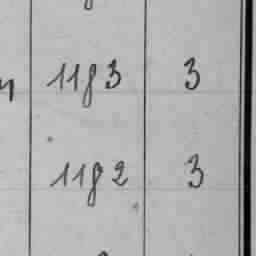 1183 3
1182 3